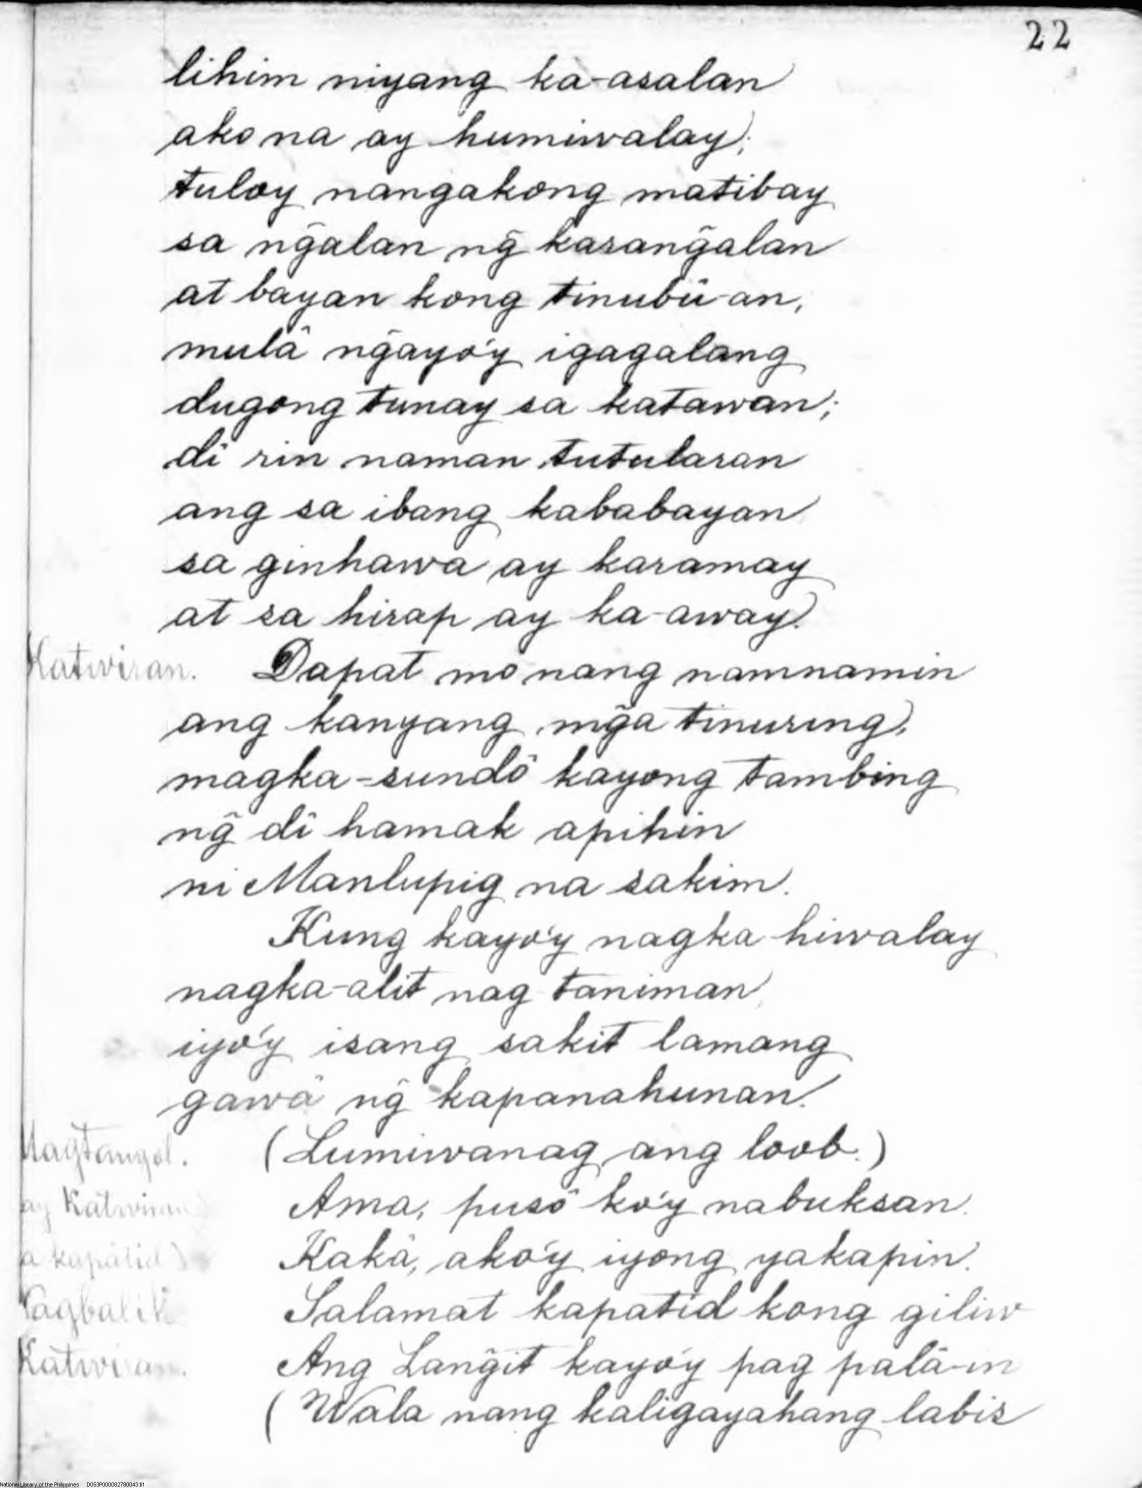 22
lihim niyang ka-asalan
ako na ay humiwalay;
tuloy nangakong matibay
sa ng̃alan ng̃ karang̃alan
at bayan kong tinubû-an,
mulâ ng̃ayo'y igagalang
dugong tunay sa katawan;
dî rin naman tutularan
ang sa ibang kababayan
sa ginhawa ay karamay
at sa hirap ay ka-away.
Katwiran. Dapat mo nang namnamin
ang kanyang mg̃a tinuring,
magka-sundô kayong tambing
ng̃ dî hamak apihin
ni Manlupig na sakim.
Kung kayo'y nagka-hiwalay
nagka-alit nag-taniman
iyo'y isang sakit lamang
gawâ ng̃ kapanahunan.
Magtangol. (Lumiwanag ang loob.)
ay Katwiran) Ama, pusô ko'y nabuksan.
a kapatid) Kakâ, ako'y iyong yakapin.
Pagbalik Salamat kapatid kong giliw
Katwiran. Ang Lang̃it kayo'y pag palâ-in
(Wala nang kaligayahang labis
National Library of the Philippines